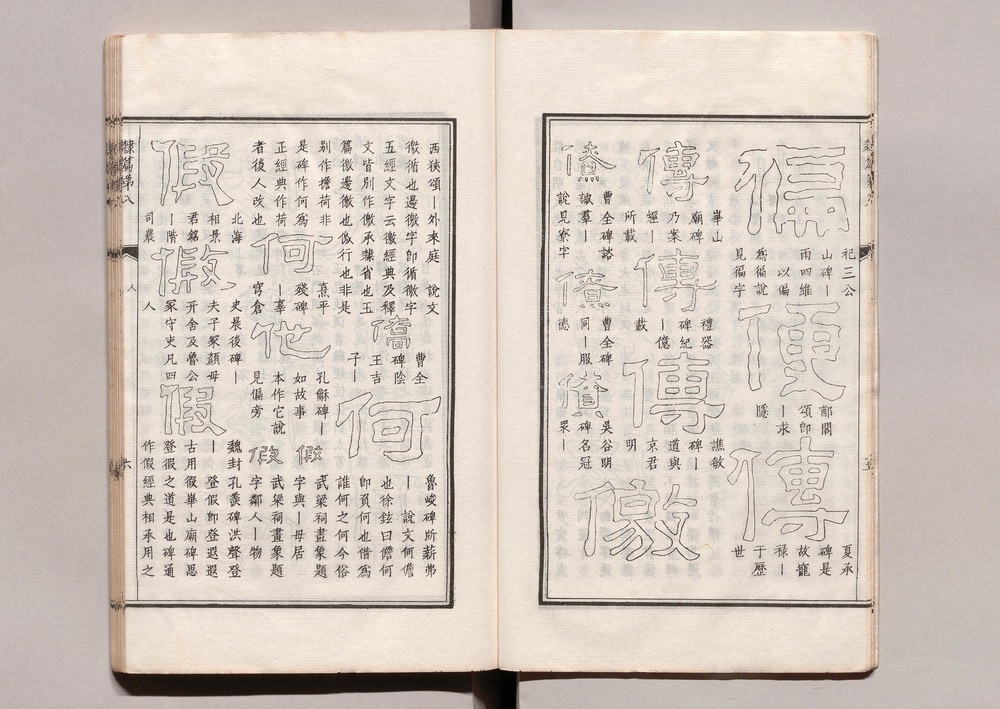 偏
祀三公
山碑｜
雨四維
以偏
為偏說
見徧字
便
郙閣
頌即
｜求
隱
傳
夏承
碑是
故寵
祿｜
于歷
世
傳
華山
廟碑
乃案
經｜
所載
傳
禮器
碑紀
｜億
載
傳
譙敏
碑｜
道與
京君
明
儌
僚
曹全碑諮
諏羣｜
說見寮字
僚
曹全碑
同｜服
德
吳谷朗
碑名冠
眾｜
西狹頌｜外來庭　說文
徼循也邊徼字即循徼字
五經文字云徼經典及釋
文皆別作儌承隸省也玉
篇徼邊徼也儌行也非是
僑
曹全
碑陰
王吉
子｜
何
魯峻碑所薪弗
｜　說文何儋
也徐鉉曰儋何
即負何也借為
誰何之何今俗
別作擔荷非
是碑作何為
正經典作荷
者後人改也
何
熹平
殘碑
｜辜
穹倉
他
孔龢碑｜
如故事
本作它說
見偏旁
假
武梁祠畫象題
字與｜母居
假
武梁祠畫象題
字鄰人｜物
假
北海
相景
君銘
｜階
司農
假
史晨後碑｜
夫子冢顏母
開舍及魯公
冢守吏凡四
人
假
魏封孔羨碑洪聲登
｜　登假即登遐遐
古用假華山廟碑思
登假之道是也碑通
作假經典相承用之
隸篇第八
人
六